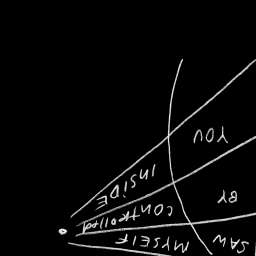 YOU
INSIDE
BY
CONTROLLED
SAW
MYSELF